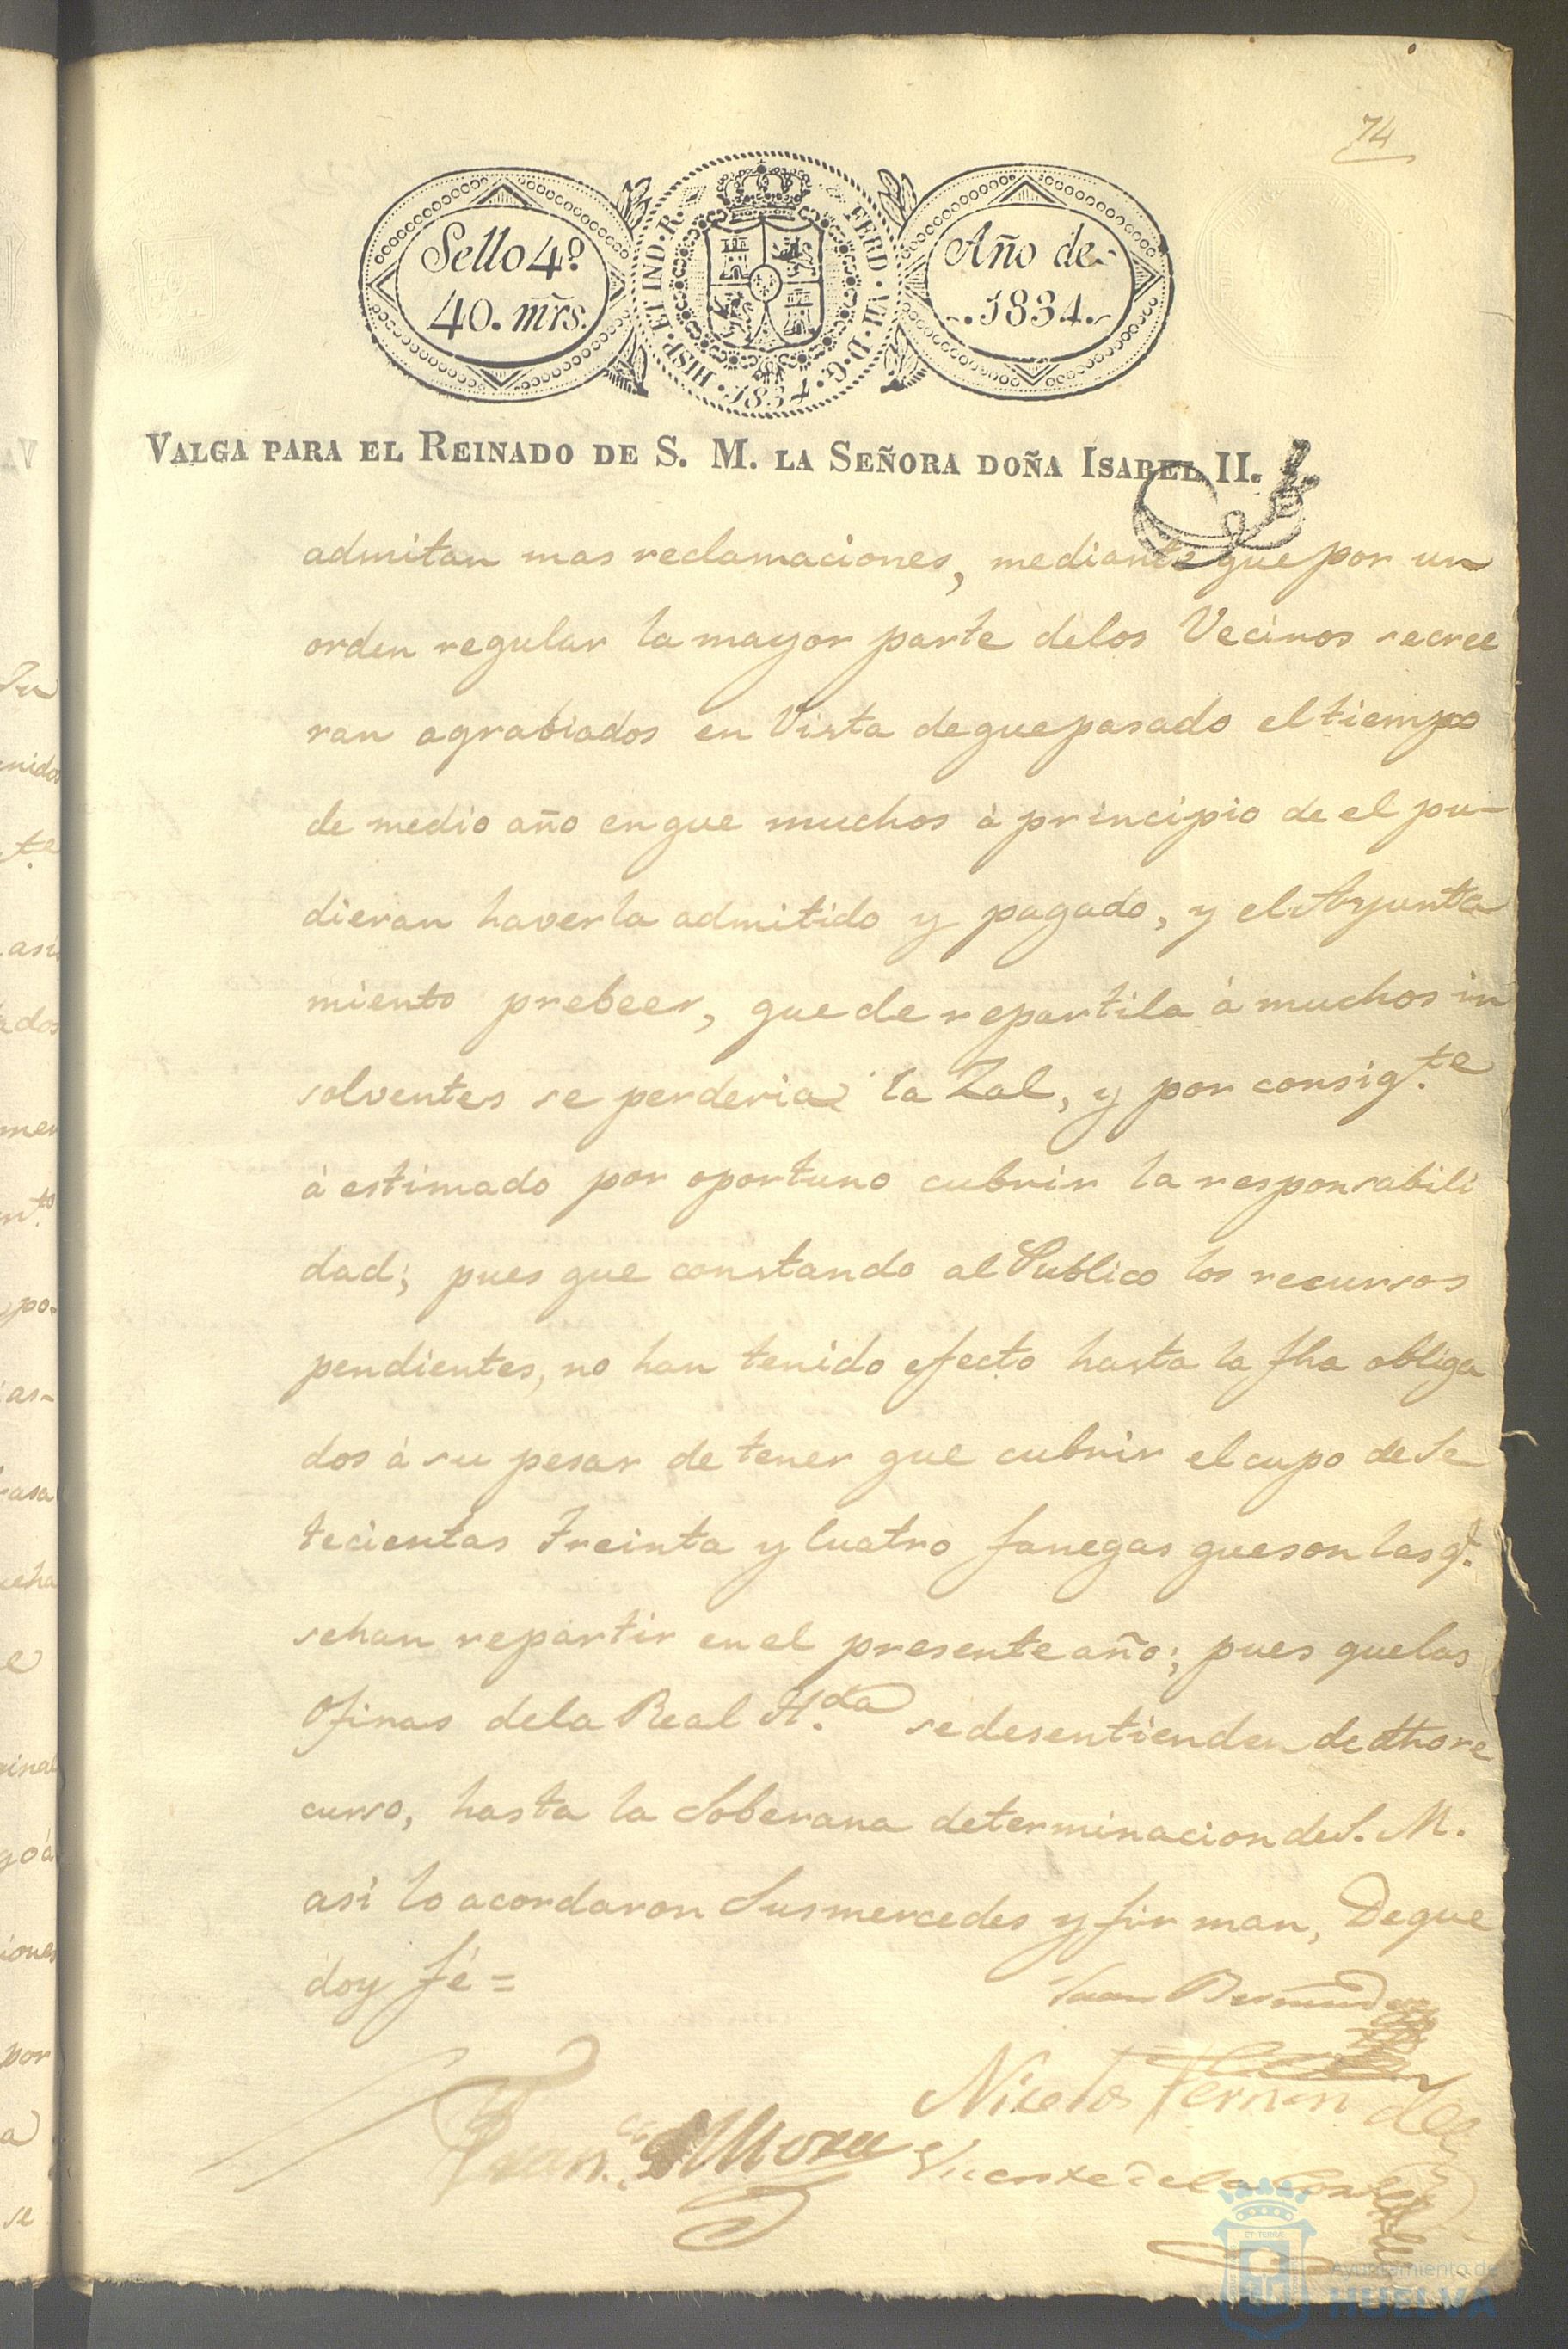 74
Sello 4º
40. mrs.
HISP. ET IND. R. FERD. VII. D. G. 1834.
Año de
1834.
VALGA PARA EL REINADO DE S. M. LA SEÑORA DOÑA ISABEL II.
admitan mas reclamaciones, mediante que por un
orden regular la mayor parte delos Vecinos se cree
ran agrabiados en Vista deque pasado el tiempo
de medio año en que muchos à principio de el pu-
dieran haverla admitido y pagado, y el Ayunta
miento prebeer, que de repartila à muchos in
solventes se perderia la Zal, y por consig.te
à estimado por oportuno cubrir la responsabili
dad; pues que constando al Publico los recursos
pendientes, no han tenido efecto hasta la fha obliga
dos à su pesar de tener que cubrir el cupo de Se
tecientas Treinta y Cuatro fanegas que son las q.e
sehan repartir en el presente año; pues que las
Ofinas dela Real H.da se desentienden de dho re
curso, hasta la Soberana determinacion de S. M.
asi lo acordaron Sus mercedes y firman, De que
doy fé =
Juan Bermudez
Niceto Fernandez
Fran.co Mora
Vicente de la
Ayuntamiento de
HUELVA